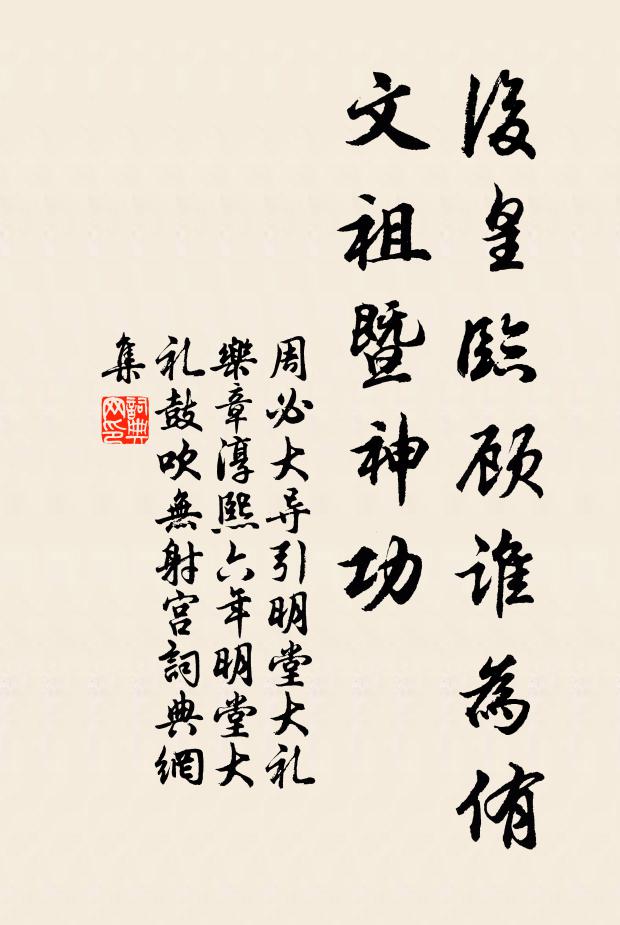 後皇臨顾誰為侑
文祖暨神功
周必大导引明堂大礼
樂章淳熙六年明堂大
礼鼓吹無射宫詞典網
集
詞典
网印